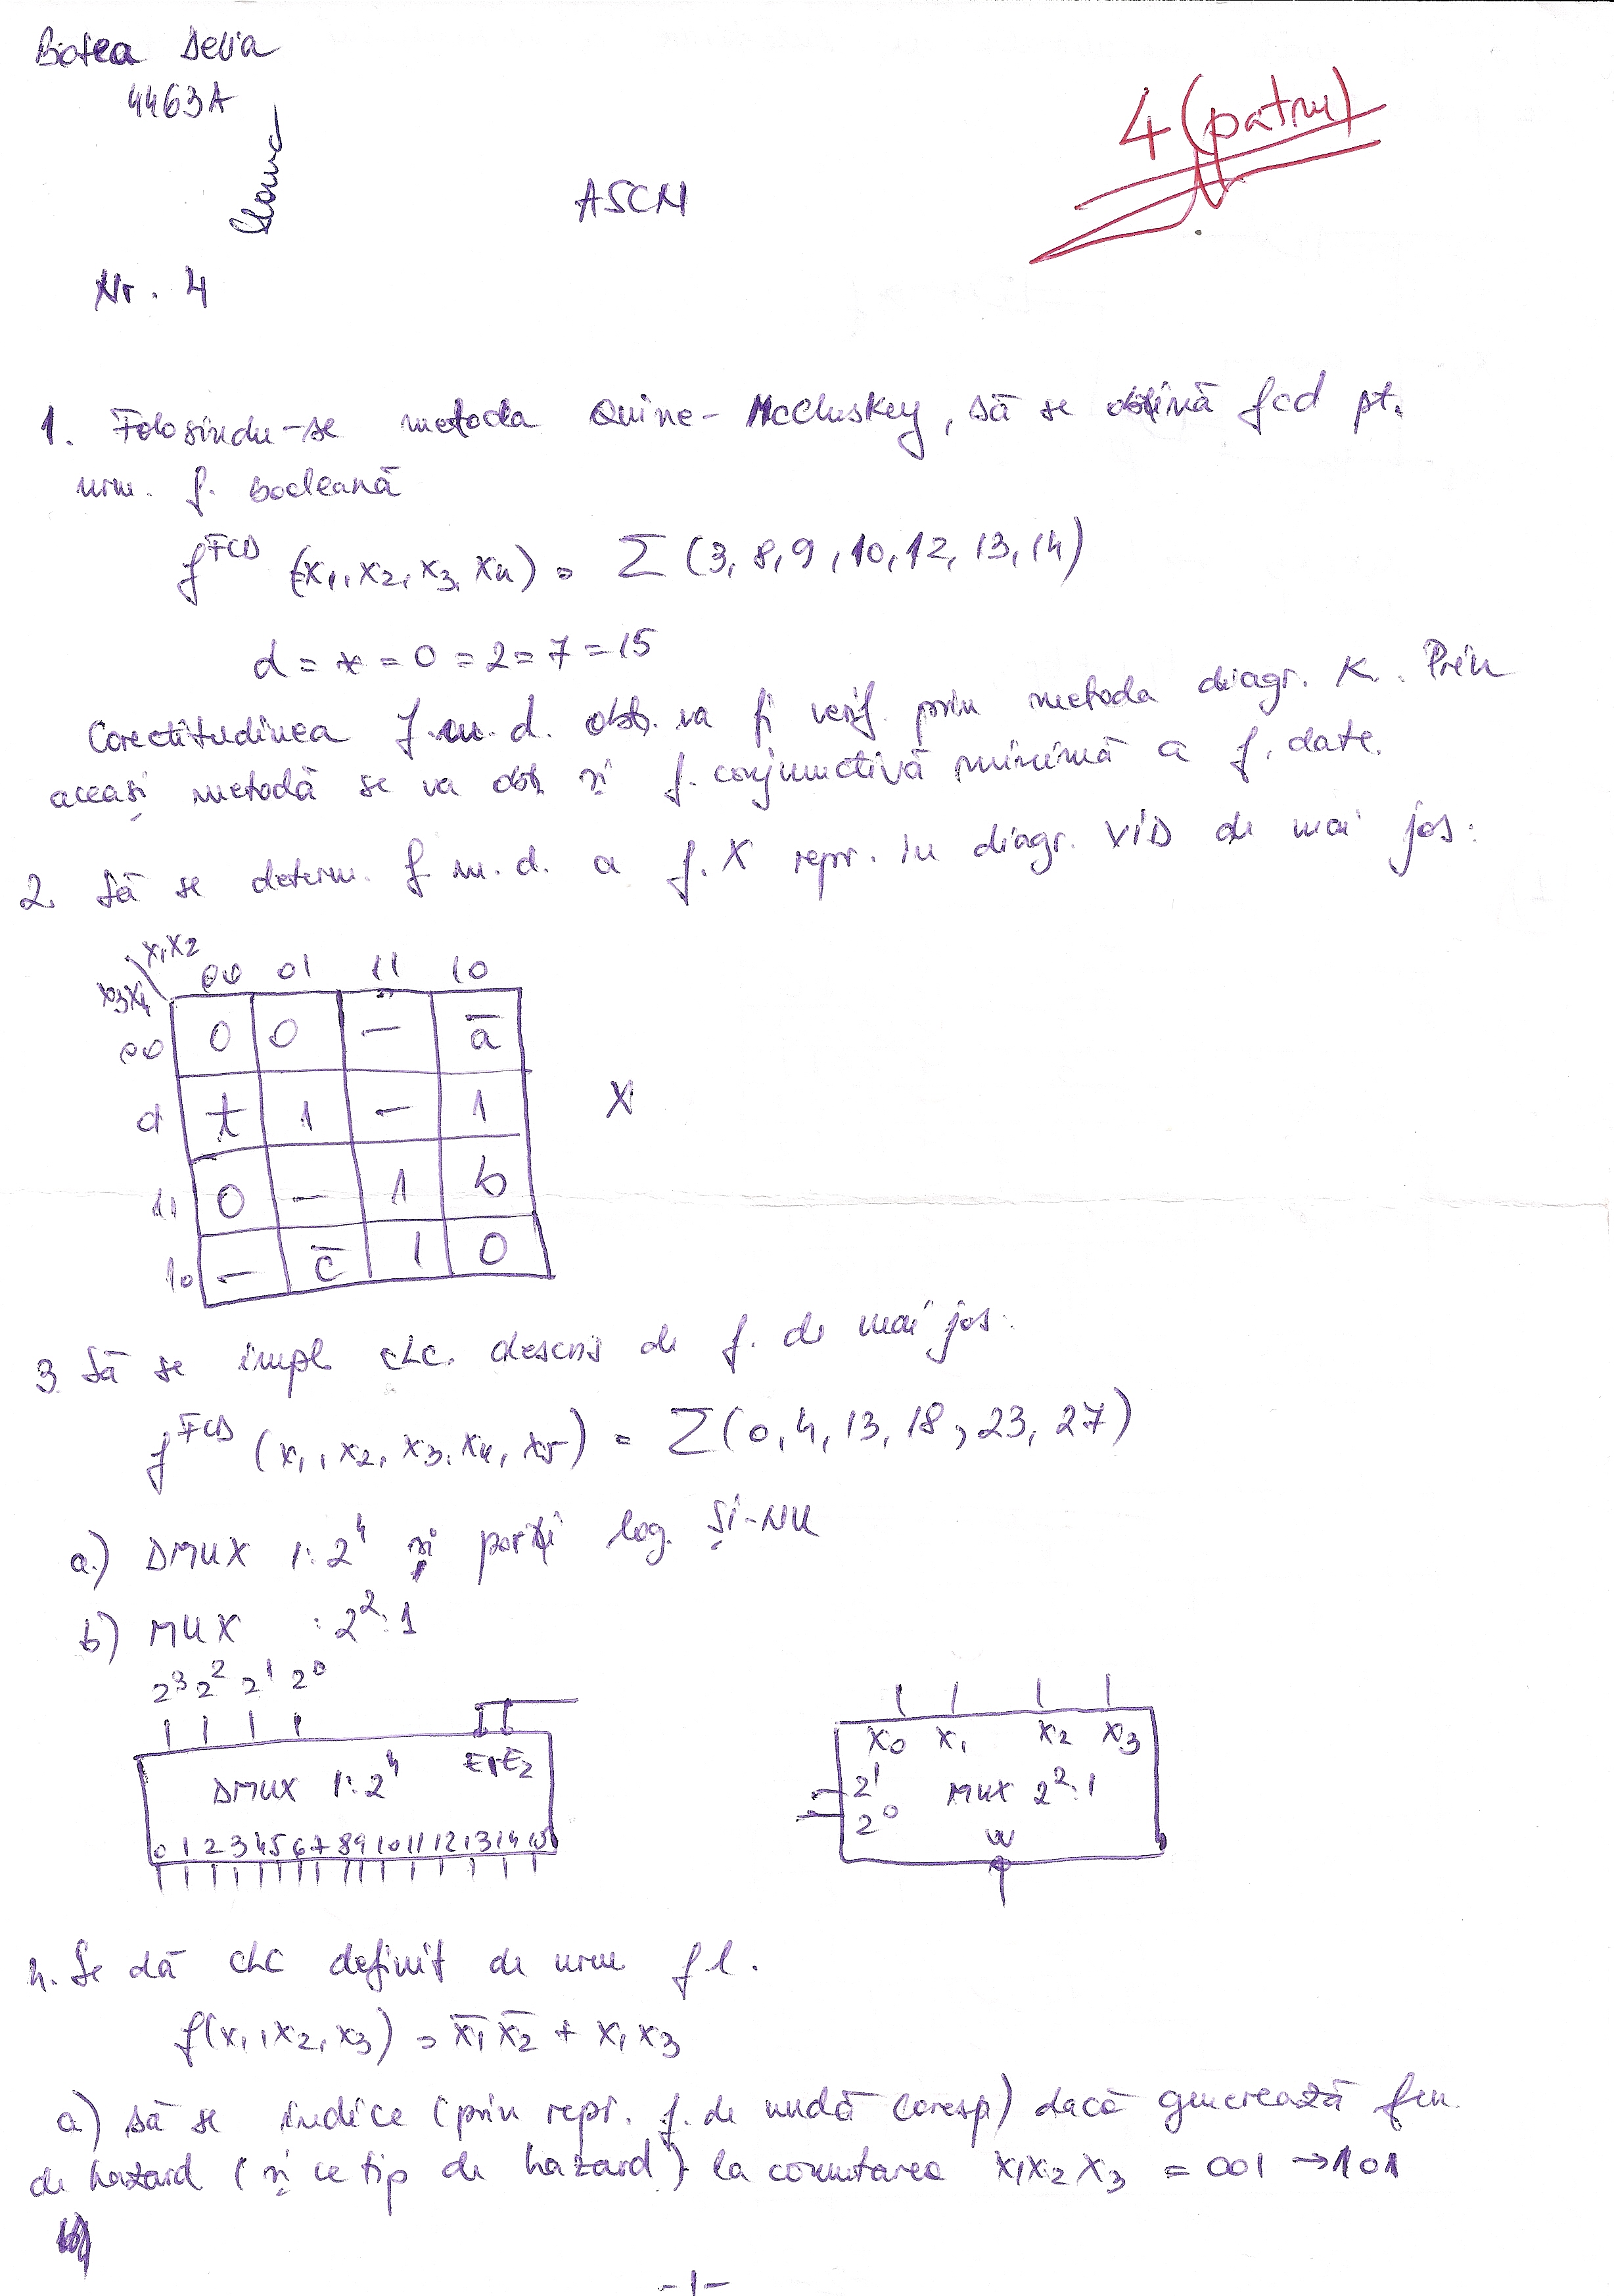 Botea Delia
4463A
4 (patru)
ASCM
Nr. 4
1. Folosindu-se metoda Quine-McCluskey, să se obțină fcd pt.
urm. f. booleană
f^FCD (x1, x2, x3, x4) = Σ (3, 8, 9, 10, 12, 13, 14)
d = * = 0 = 2 = 7 = 15
Corectitudinea f.m.d. obț. va fi verif. prin metoda diagr. K. Prin
aceași metodă se va obț și f. conjunctivă minimă a f. date.
2. Să se determ. f.m.d. a f. X repr. în diagr. VID de mai jos:
x1x2
00 01 11 10
x3x4
00 0 0 - a̅
01 t 1 - 1
X
11 0 - 1 b
10 - c̅ 1 0
3. Să se impl. CLC. descris de f. de mai jos:
f^FCD (x1, x2, x3, x4, x5) = Σ(0, 4, 13, 18, 23, 27)
a.) DMUX 1:2^4 și porți log. ȘI-NU
b) MUX : 2^2:1
2^3 2^2 2^1 2^0
E1 E2
DMUX 1:2^4
0 1 2 3 4 5 6 7 8 9 10 11 12 13 14 15
x0 x1 x2 x3
2^1 MUX 2^2:1
2^0
W
4. Se dă CLC definit de urm f.l.
f(x1, x2, x3) = x̅1 x̅2 + x1 x3
a) să se indice (prin repr. f. de undă coresp) dacă generează fen.
de hazard (și ce tip de hazard) la comutarea x1x2x3 = 001 → 101
-1-